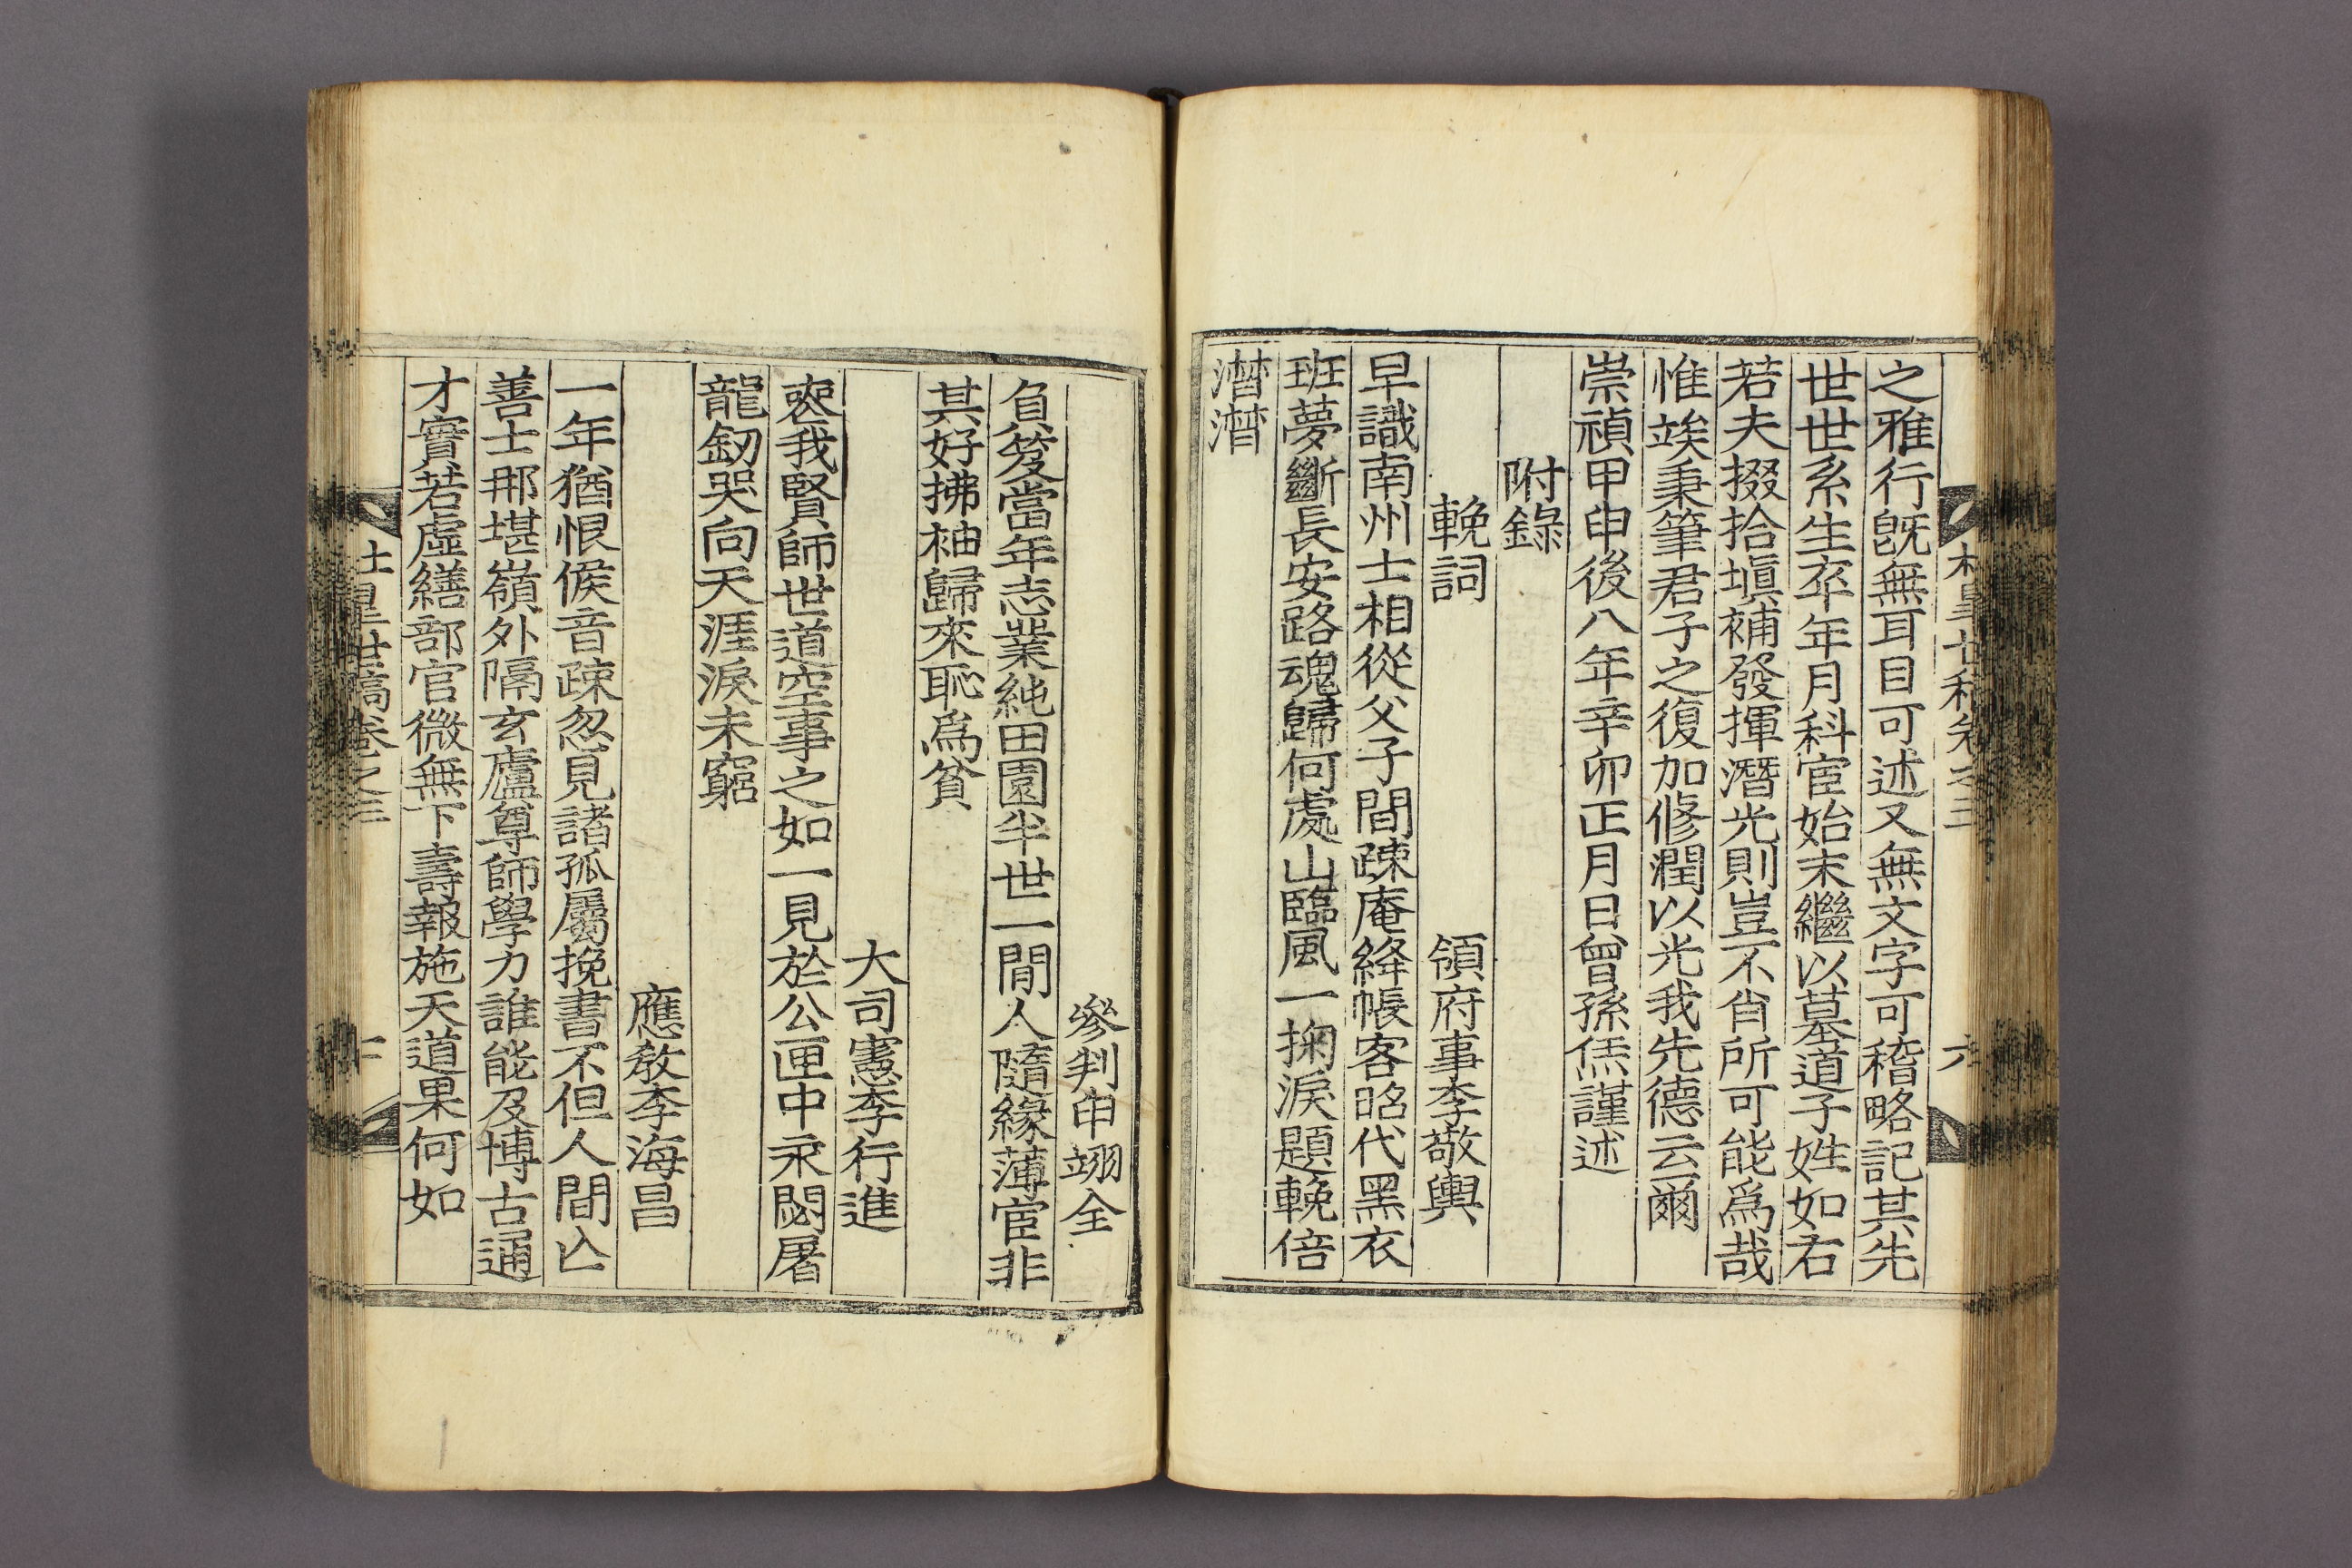 之雅行旣無耳目可述又無文字可稽略記其先
世世系生卒年月科宦始末繼以墓道子姓如右
若夫掇拾塡補發揮潛光則豈不肖所可能爲哉
惟竢秉筆君子之復加修潤以光我先德云爾
崇禎甲申後八年辛卯正月日曾孫㷩謹述
附錄
輓詞 領府事李敬輿
早識南州士相從父子間踈庵絳帳客昭代黑衣
班夢斷長安路魂歸何處山臨風一掬淚題輓倍
潸潸
參判申翊全
負笈當年志業純田園半世一閒人隨緣薄宦非
其好拂袖歸來恥爲貧
大司憲李行進
喪我賢師世道空事之如一見於公匣中永閟屠
龍釰哭向天涯淚未窮
應敎李海昌
一年猶恨候音踈忽見諸孤屬挽書不但人間亡
善士那堪嶺外隔玄廬尊師學力誰能及博古通
才實若虛繕部官微無下壽報施天道果何如
世稿卷之三